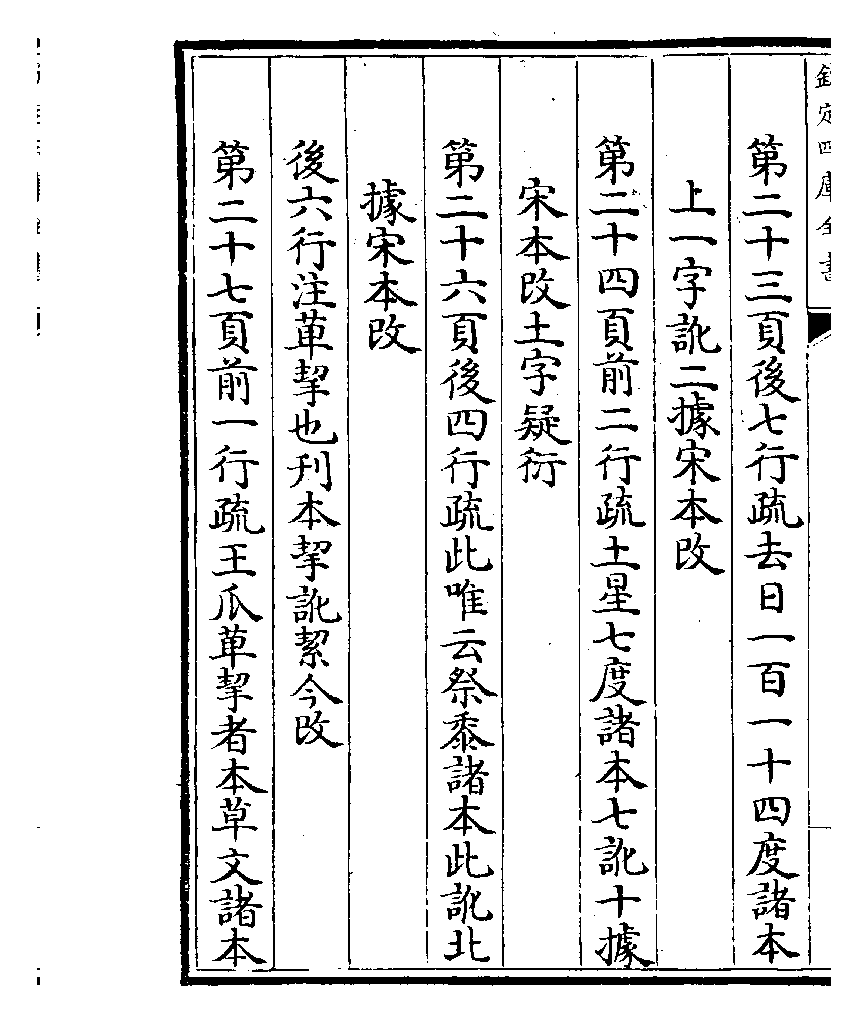 欽定四庫全書
第二十三頁後七行疏去日一百一十四度諸本
上一字訛二據宋本改
第二十四頁前二行疏土星七度諸本七訛十據
宋本改土字疑衍
第二十六頁後四行疏此唯云祭黍諸本此訛北
據宋本改
後六行注萆挈也刊本挈訛絜今改
第二十七頁前一行疏王瓜萆挈者本草文諸本